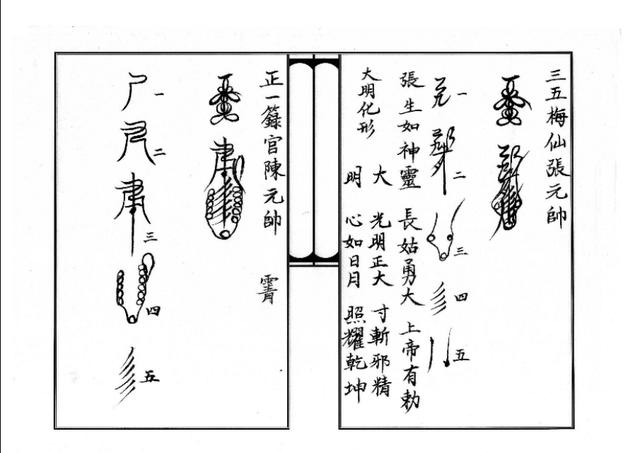 三五梅仙張元帥
一
二
三
四
五
張生如神靈 長姑勇大 上帝有勅
大明化形
大 光明正大 寸斬邪精
明 心如日月 照耀乾坤
正一籙官陳元帥
一
二
三
四
五